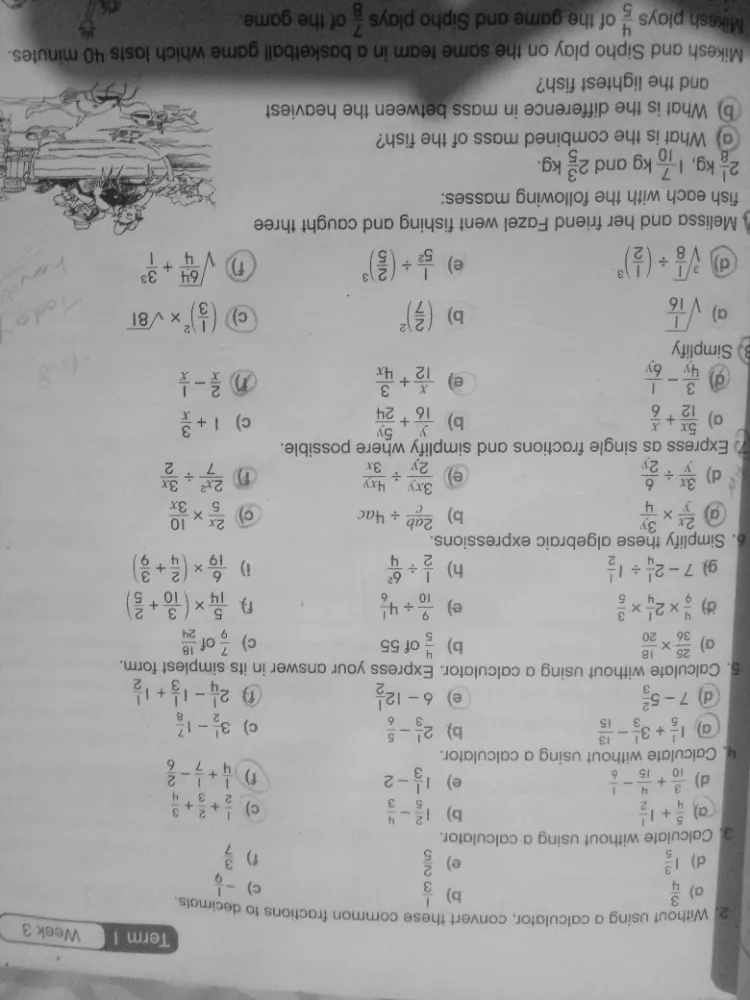 Term 1 Week 3
2. Without using a calculator, convert these common fractions to decimals.
a) 3/4 b) 1/3 c) –1/9
d) 1 3/5 e) 2/5 f) 3/7
3. Calculate without using a calculator.
a) 5/4 + 1 1/2 b) 1 2/5 – 4/3 c) 1/2 + 2/3 + 3/4
d) 3/10 + 4/15 – 1/6 e) 1 1/3 – 2 f) 1/4 + 1/7 – 2/6
4. Calculate without using a calculator.
a) 1 1/5 + 3 1/3 – 13/15 b) 2 1/3 – 5/6 c) 3 1/2 – 1 7/8
d) 7 – 5 2/3 e) 6 – 12 1/2 f) 2 1/4 – 1 1/3 + 1 1/2
5. Calculate without using a calculator. Express your answer in its simplest form.
a) 25/36 × 18/20 b) 4/5 of 55 c) 7/9 of 18/24
d) 4/9 × 2 1/4 × 3/5 e) 9/10 ÷ 4 1/6 f) 5/14 × (3/10 + 2/5)
g) 7 – 2 1/4 ÷ 1 1/2 h) 1/2 ÷ 6²/4 i) 6/19 × (2/4 + 3/9)
6. Simplify these algebraic expressions.
a) 2x/y × 3y/4 b) 2ab/c ÷ 4ac c) 2x/5 × 10/3x
d) 3x/y ÷ 6/2y e) 3xy/2y ÷ 4xy/3x f) 2x²/7 ÷ 3x/2
7. Express as single fractions and simplify where possible.
a) 5x/12 + x/6 b) y/16 + 5y/24 c) 1 + 3/x
d) 3/4y – 1/6y e) x/12 + 3/4x f) 2/x – 1/x
8. Simplify
a) √1/16 b) (2/7)² c) (1/3)² × √81
d) ³√1/8 ÷ (1/2)³ e) 1/5² ÷ (2/5)³ f) √64/4 + 3³/1
Melissa and her friend Fazel went fishing and caught three
fish each with the following masses:
2 1/8 kg, 1 7/10 kg and 2 3/5 kg.
a) What is the combined mass of the fish?
b) What is the difference in mass between the heaviest
and the lightest fish?
Mikesh and Sipho play on the same team in a basketball game which lasts 40 minutes.
Mikesh plays 4/5 of the game and Sipho plays 7/8 of the game.